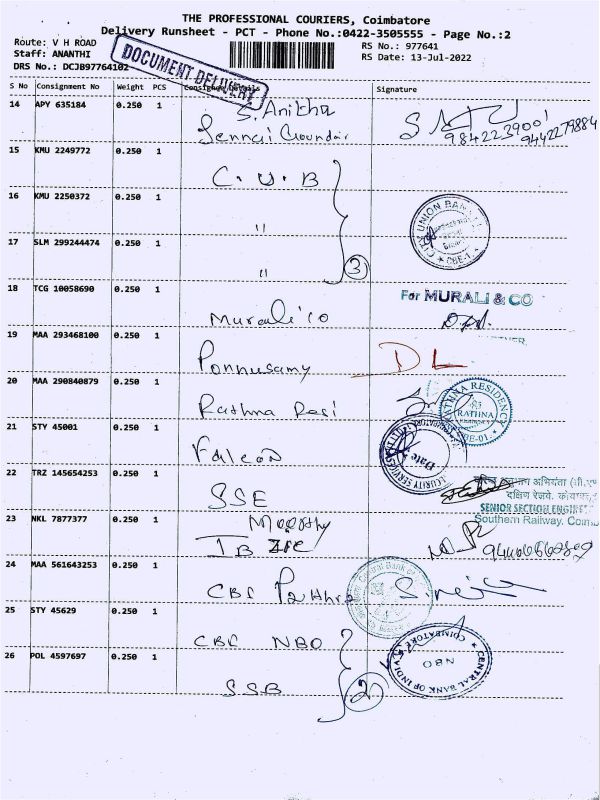 THE PROFESSIONAL COURIERS, Coimbatore
Delivery Runsheet - PCT - Phone No.:0422-3505555 - Page No.:2
Route: V H ROAD
Staff: ANANTHI
DRS No.: DCJB97764102
RS No.: 977641
RS Date: 13-Jul-2022
DOCUMENT DELIVERY
S No Consignment No Weight PCS Consignee Details Signature
14 APY 635184 0.250 1 S. Anitha
9842239001
9442279884
15 KMU 2249772 0.250 1 C. U. B
16 KMU 2250372 0.250 1 "
CITY UNION BANK
CBE-1
17 SLM 299244474 0.250 1 " 3
18 TCG 10058690 0.250 1 Murali co
For MURALI & CO
19 MAA 293468100 0.250 1 Ponnusamy DL
20 MAA 290840879 0.250 1 Rathna Resi
RATHNA RESIDENCY
RATHNA
21 STY 45001 0.250 1 Falcon
Date
22 TRZ 145654253 0.250 1 SSE
दक्षिण रेलवे.
SENIOR SECTION ENGINEER
Southern Railway.
23 NKL 7877377 0.250 1 Moorthy
24 MAA 561643253 0.250 1 CBE
Central Bank of
25 STY 45629 0.250 1 CBE NBO
26 POL 4597697 0.250 1 SSB 2
CENTRAL BANK OF INDIA
NBO
COIMBATORE